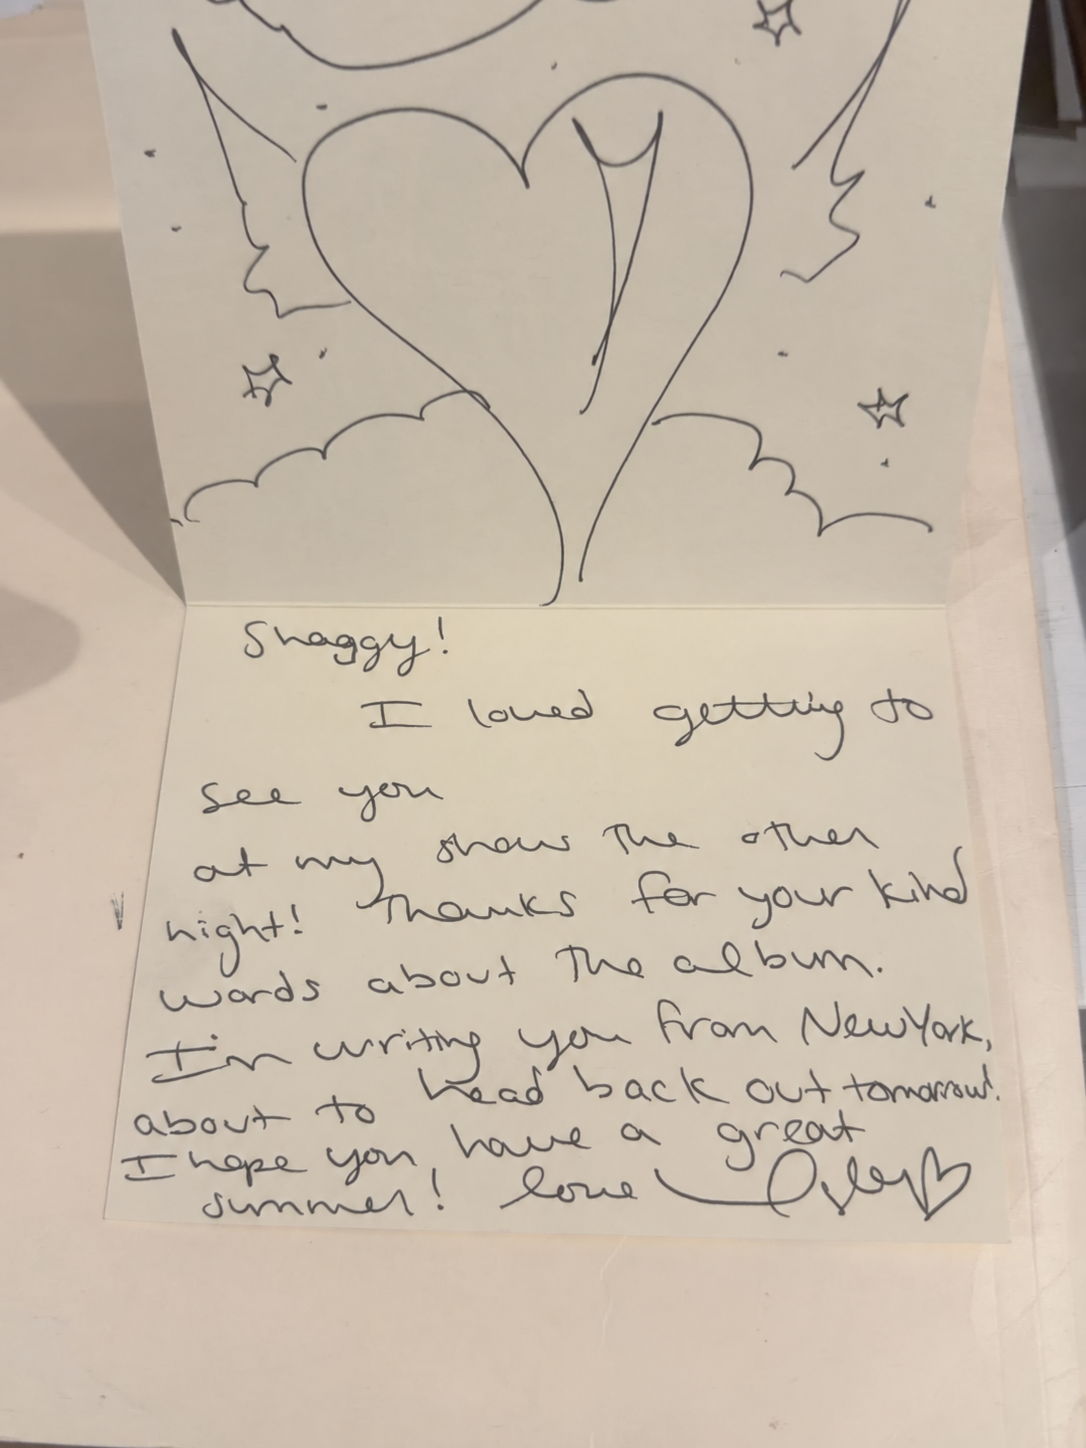 Shaggy!
I loved getting to
see you
at my show the other
night! Thanks for your kind
words about the album.
I'm writing you from New York,
about to head back out tomorrow!
I hope you have a great
summer! love